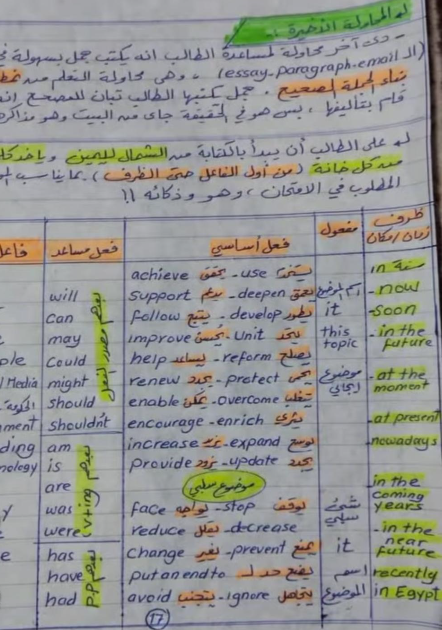 له المحاولة الأخيرة :-
- دى آخر محاولة لمساعدة الطالب انه يكتب جمل بسهولة
(essay - paragraph - email الـ) ، وهى محاولة التعلم من
بناء الجملة الصحيح ، جمل يكتبها الطالب تبان للمصحح
قام بتأليفها ، بس هو فى الحقيقة جاى من البيت وهو مذاكر
له على الطالب أن يبدأ بالكتابة من الشمال لليمين و
من كل خانة (من أول الفاعل حتى الظرف) بما يناسب
المطلوب فى الامتحان ، وهو وذكائه !!
ظرف زمان/مكان مفعول فعل أساسي فعل مساعد فاعل
in سنة achieve يحقق - use يستخدم
- now اسم الموضوع support يدعم - deepen يعمق will
- soon it follow يتبع - develop يطور can
- in the future this topic improve يحسن - unit يتحد may
help يساعد - reform يصلح Could
- at the moment موضوع إيجابي renew يجدد - protect يحمى might Media
enable يمكن - Overcome يتغلب should
- at present encourage - enrich يثرى shouldn't
- nowadays increase يزيد - expand يوسع am
provide يزود - update يجدد is
يعدهم مصدر الفعل
- in the coming years موضوع سلبي are
شئ سلبي face يواجه - stop يوقف was
- in the near future reduce يقلل - decrease were
يعدهم (v+ing)
it change يغير - prevent يمنع has
recently اسم put an end to يضع حد لـ have
in Egypt الموضوع avoid يتجنب - ignore يتجاهل had
يعدهم P.P
17